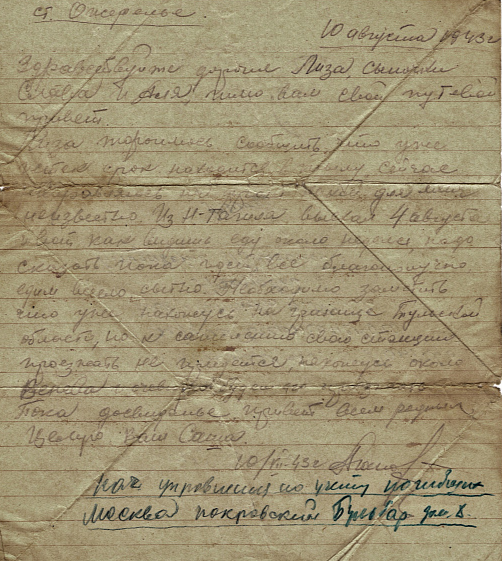 ст. Ожерелье.
10 августа 1943г
Здравствуйте дорогие Лиза сыночки
Слава и шлю вам свой путевой
привет.
Лиза тороплюсь сообщить что уже
срок нахожусь в сейчас
на для меня
неизвестно. Из Н-Тагила выехал 4 августа
и вот как видишь еду около недели, надо
сказать пока всё благополучно
едим сытно. Необходимо заметить
что уже нахожусь на границе Тульской
области, но к сожалению свою станцию
проезжать не придется, нахожусь около
Пока досвиданье привет всем родным
Целую вас Саша.
10/VIII-43г
нач управления по учету погибших
Москва покровский Бульвар дом 8